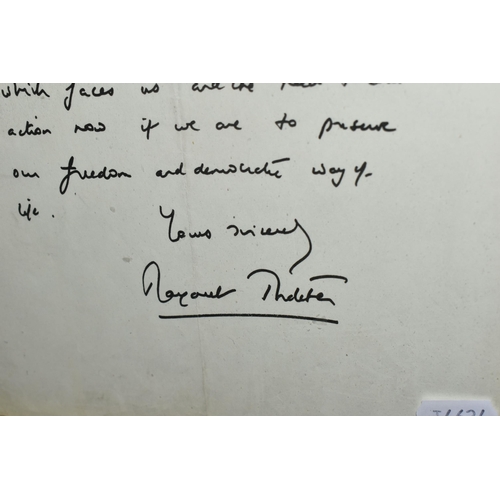 which faces us and the need
action now if we are to preserve
our freedom and democratic way of
life.
Yours sincerely
Margaret Thatcher